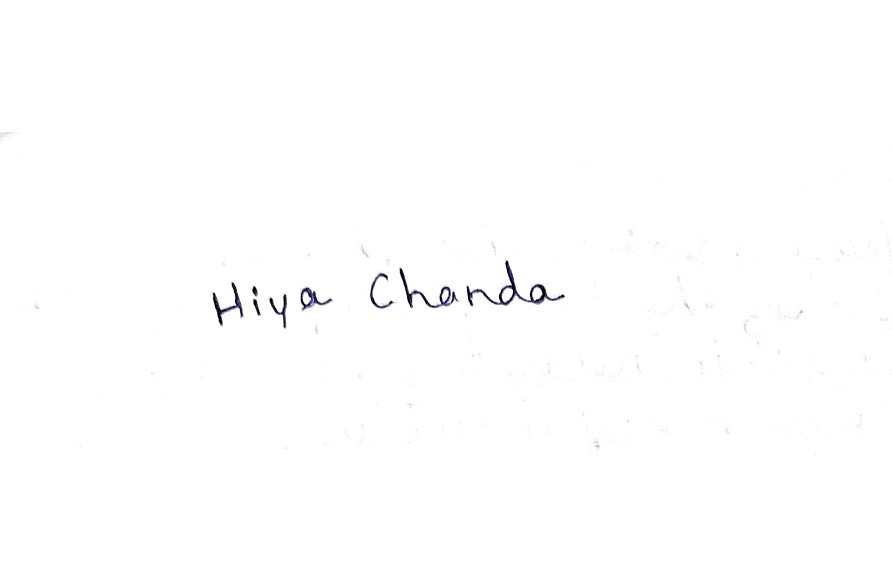 Hiya Chanda